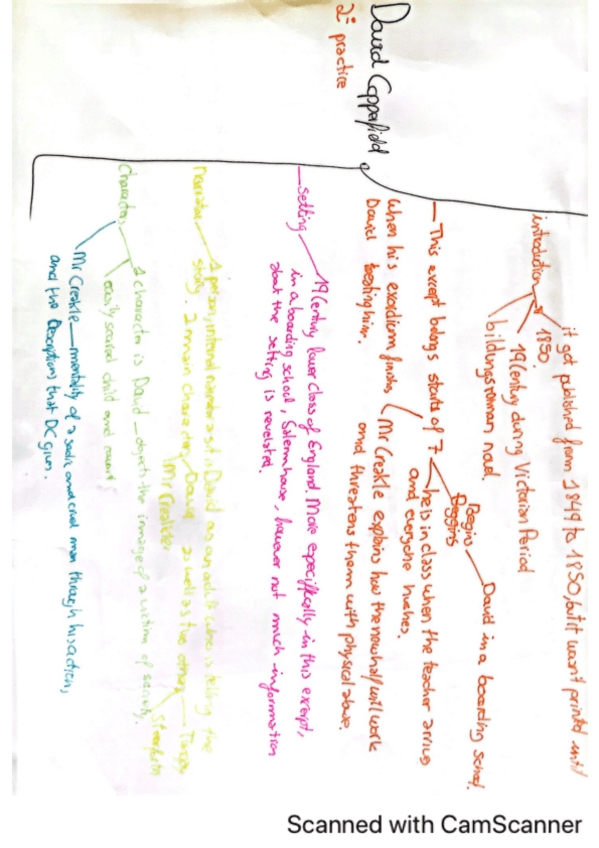 David Copperfield
2º practice
it got published from 1849 to 1850, but it wasn't printed until
introduction 1850.
19 Century during Victorian Period
bildungsroman novel.
Begins David in a boarding school.
This exerpt belongs starts of 7 he is in class when the teacher arrives
and everyone hushes,
when his exordium finishs Mr Creakle explains how the new half will work
David beating him. and threatens them with physical abuse.
Setting 19 Century lower class of England. More especifically in this exerpt,
in a boarding school, Salem house, however not much information
about the setting is revelated.
narrator 1 person, internal narrator as it is David as an adult who is telling the
story. 2 main characters David as well as the other
Mr Creakle
Characters 1 character is David objects the image of a victim of society.
easily scared child and
Mr Creakle mentality of a sadic and cruel man through his action,
and the descriptions that DC gives.
Scanned with CamScanner